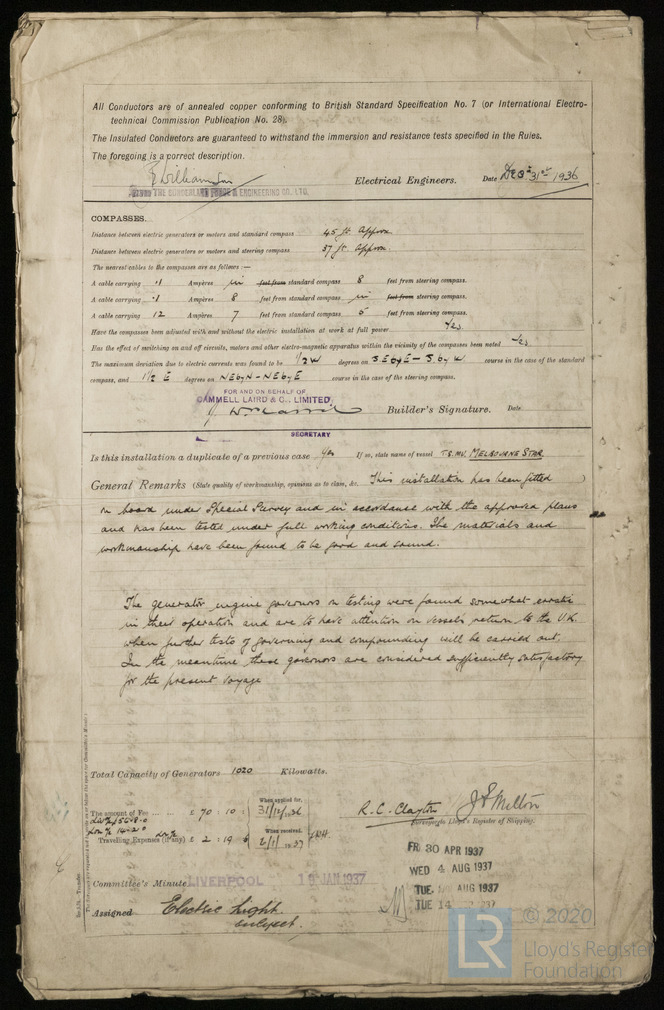 All Conductors are of annealed copper conforming to British Standard Specification No. 7 (or International Electro-
technical Commission Publication No. 28).
The Insulated Conductors are guaranteed to withstand the immersion and resistance tests specified in the Rules.
The foregoing is a correct description.
Williamson Electrical Engineers. Date Dec 31st 1936
THE SUNDERLAND FORGE & ENGINEERING CO., LTD.
COMPASSES.
Distance between electric generators or motors and standard compass 45 ft Approx.
Distance between electric generators or motors and steering compass 37 ft Approx.
The nearest cables to the compasses are as follows:—
A cable carrying .1 Ampères in feet from standard compass 8 feet from steering compass.
A cable carrying .1 Ampères 8 feet from standard compass in feet from steering compass.
A cable carrying 12 Ampères 7 feet from standard compass 5 feet from steering compass.
Have the compasses been adjusted with and without the electric installation at work at full power Yes.
Has the effect of switching on and off circuits, motors and other electro-magnetic apparatus within the vicinity of the compasses been noted Yes
The maximum deviation due to electric currents was found to be 1/2 W degrees on SEbyE - SbyW course in the case of the standard
compass, and 1 1/2 E degrees on NEbyN-NEbyE course in the case of the steering compass.
FOR AND ON BEHALF OF
CAMMELL LAIRD & CO., LIMITED
Builder's Signature. Date
SECRETARY
Is this installation a duplicate of a previous case Yes If so, state name of vessel T.S.MV. MELBOURNE STAR
General Remarks (State quality of workmanship, opinions as to class, &c. This installation has been fitted )
on board under Special Survey and in accordance with the approved plans
and has been tested under full working conditions. The materials and
workmanship have been found to be good and sound.
The generator engine governors on testing were found somewhat erratic
in their operation and are to have attention on vessels return to the U.K.
when further tests of governing and compounding will be carried out.
In the meantime these governors are considered sufficiently satisfactory
for the present voyage
Total Capacity of Generators 1020 Kilowatts.
The amount of Fee ... £ 70 : 10 : When applied for, 31/12/36
R. C. Clayton J S Mellon
Surveyor to Lloyd's Register of Shipping.
Travelling Expenses (if any) £ 2 : 19 : 6 When received, 2/1/1937
FRI 30 APR 1937
WED 4 AUG 1937
TUE. AUG 1937
TUE 14 937
Committee's Minute LIVERPOOL JAN 1937
Assigned Electric Light.
subject.
© 2020
LR
Lloyd's Register
Foundation